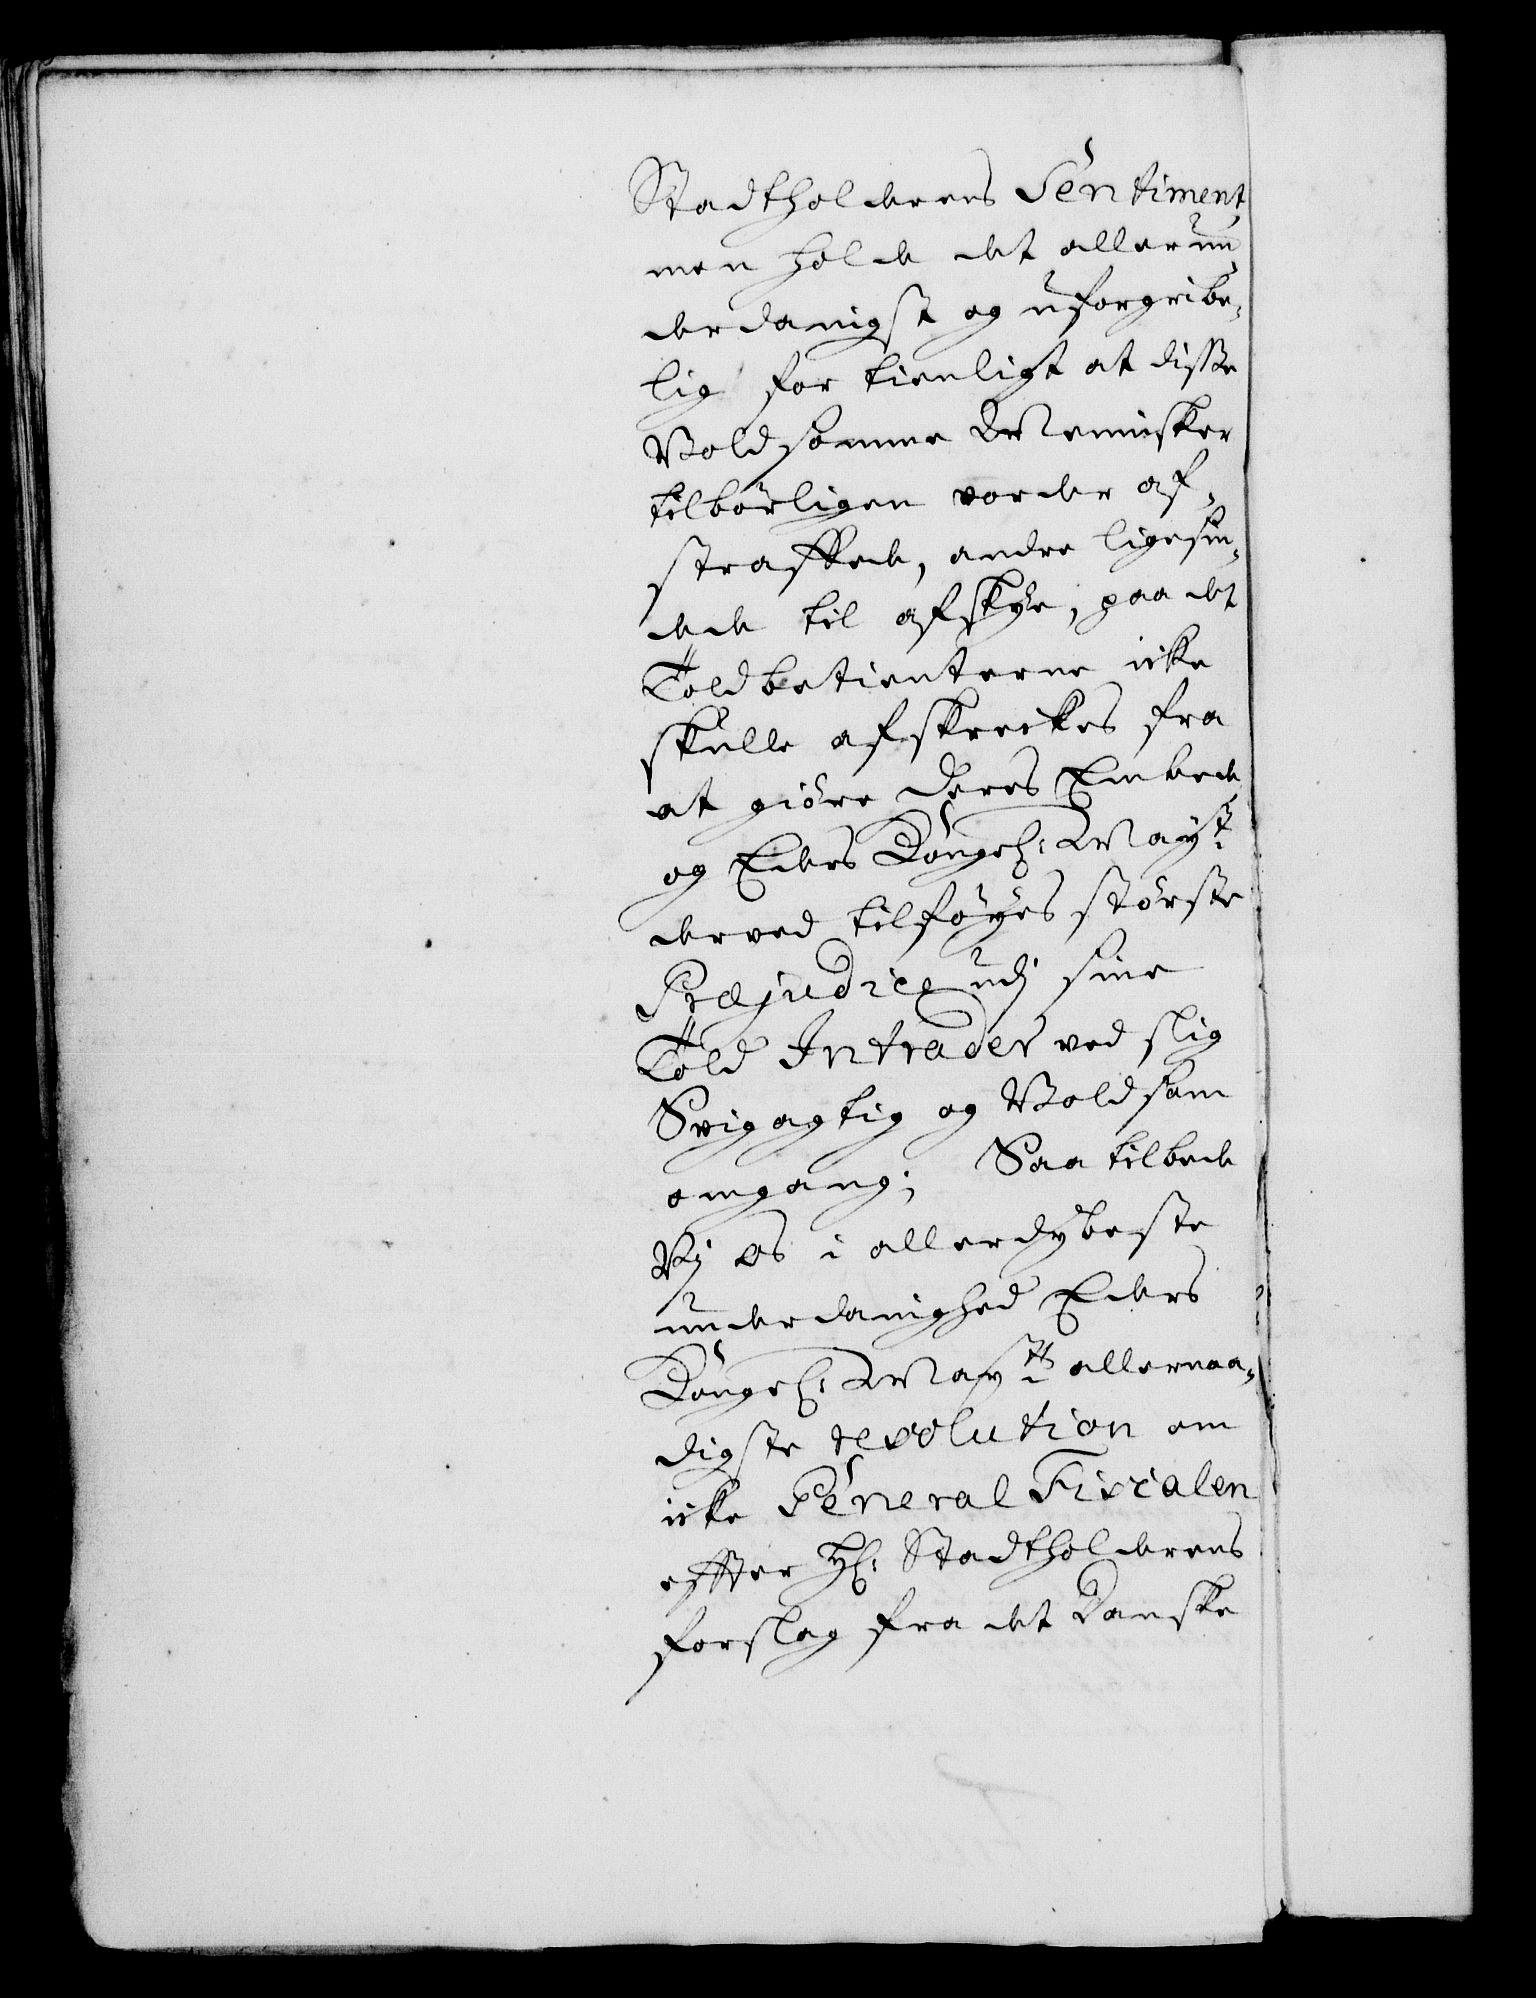 Stadtholderens Sentiment,
men holde det allerun
derdanigst og uforgribe„
lig for tienligt at disse
Voldsomme Mennisker
tilbørligen vorder af„
straffede, andre ligesin„
dede til afskye, paa det
Toldbetienterne icke
skulle afskreckes fra
at giøre deres Embede
og Eders Kongel: Mayst:
derved tilføyes største
Præjudice udj sine
Told Intrader ved slig
Svigagtig og Voldsom
omgang; Saa tilbede
Vj os i allerdybeste
underdanighed Eders
Kongel: Maytts allernaa„
digste resolution om
icke General Fiscalen
effter H: Stadtholderens
forslag fra det Danske